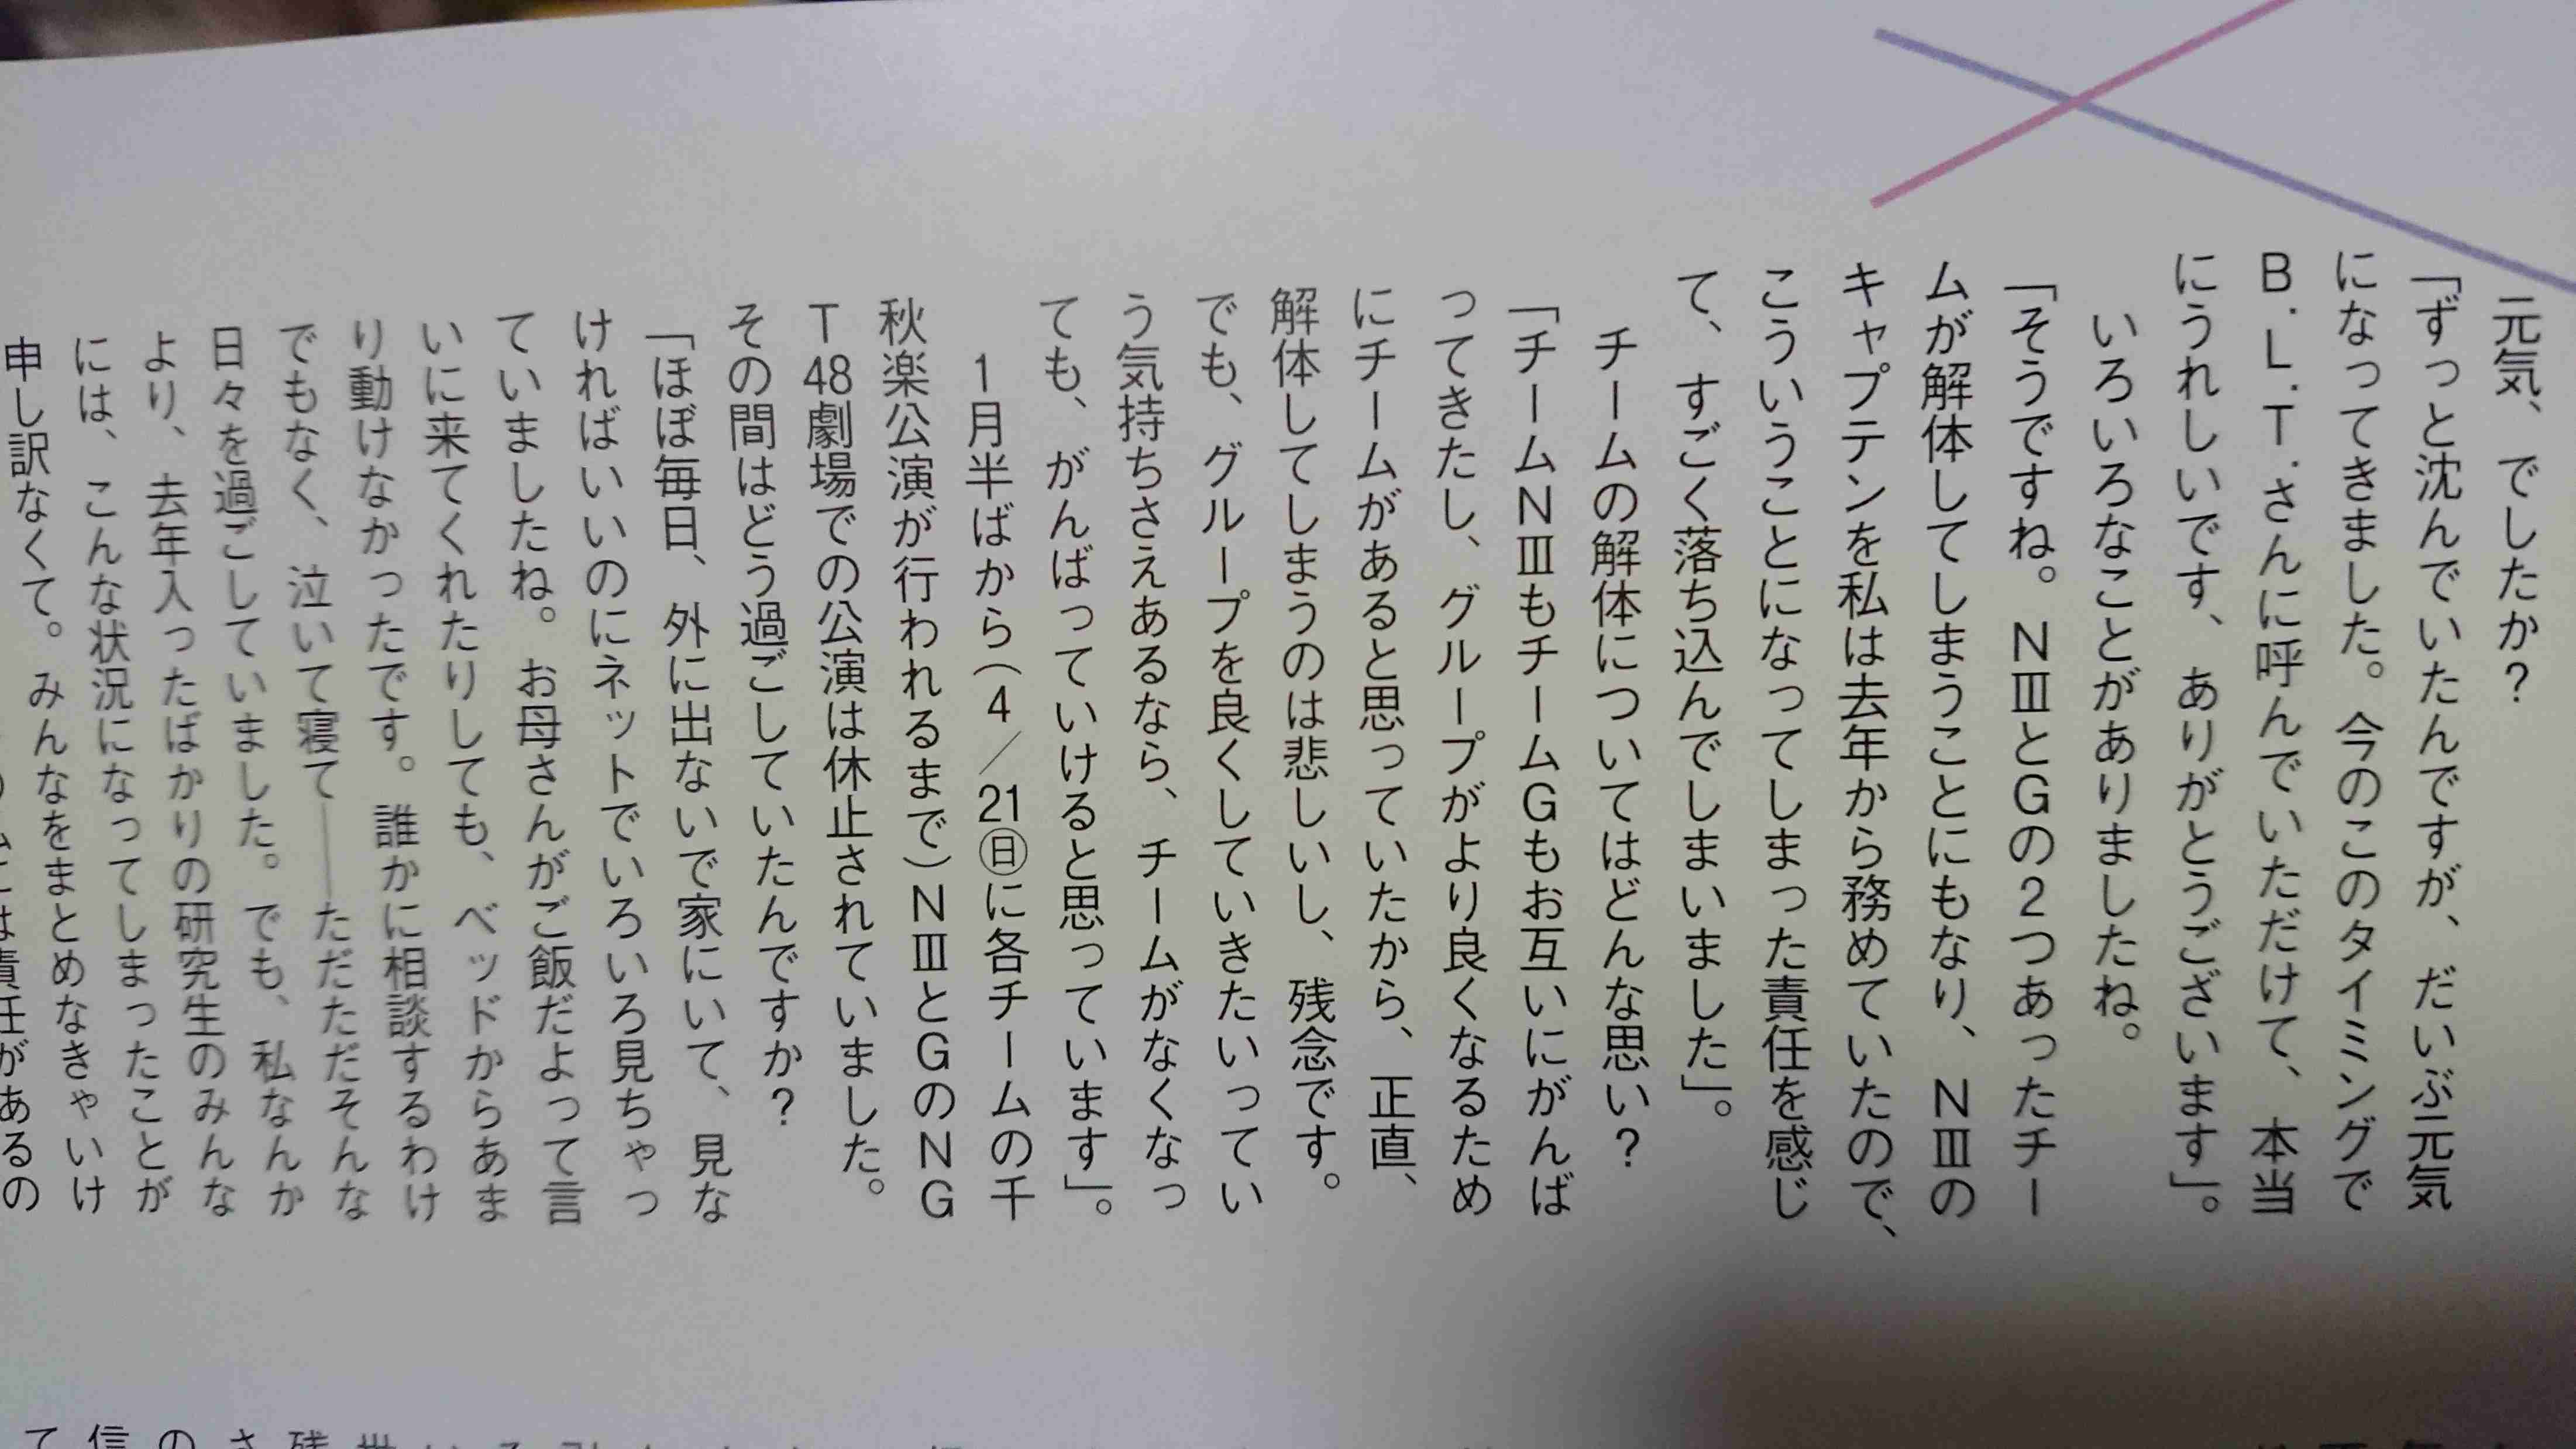 元気、でしたか？
「ずっと沈んでいたんですが、だいぶ元気
になってきました。今のこのタイミングで
B.L.T.さんに呼んでいただけて、本当
にうれしいです、ありがとうございます」。
いろいろなことがありましたね。
「そうですね。NⅢとGの2つあったチー
ムが解体してしまうことにもなり、NⅢの
キャプテンを私は去年から務めていたので、
こういうことになってしまった責任を感じ
て、すごく落ち込んでしまいました」。
チームの解体についてはどんな思い？
「チームNⅢもチームGもお互いにがんば
ってきたし、グループがより良くなるため
にチームがあると思っていたから、正直、
解体してしまうのは悲しいし、残念です。
でも、グループを良くしていきたいってい
う気持ちさえあるなら、チームがなくなっ
ても、がんばっていけると思っています」。
1月半ばから（4／21㊐に各チームの千
秋楽公演が行われるまで）NⅢとGのNG
T48劇場での公演は休止されていました。
その間はどう過ごしていたんですか？
「ほぼ毎日、外に出ないで家にいて、見な
ければいいのにネットでいろいろ見ちゃっ
ていましたね。お母さんがご飯だよって言
いに来てくれたりしても、ベッドからあま
り動けなかったです。誰かに相談するわけ
でもなく、泣いて寝て――ただただそんな
日々を過ごしていました。でも、私なんか
より、去年入ったばかりの研究生のみんな
には、こんな状況になってしまったことが
申し訳なくて。みんなをまとめなきゃいけ
は責任があるの